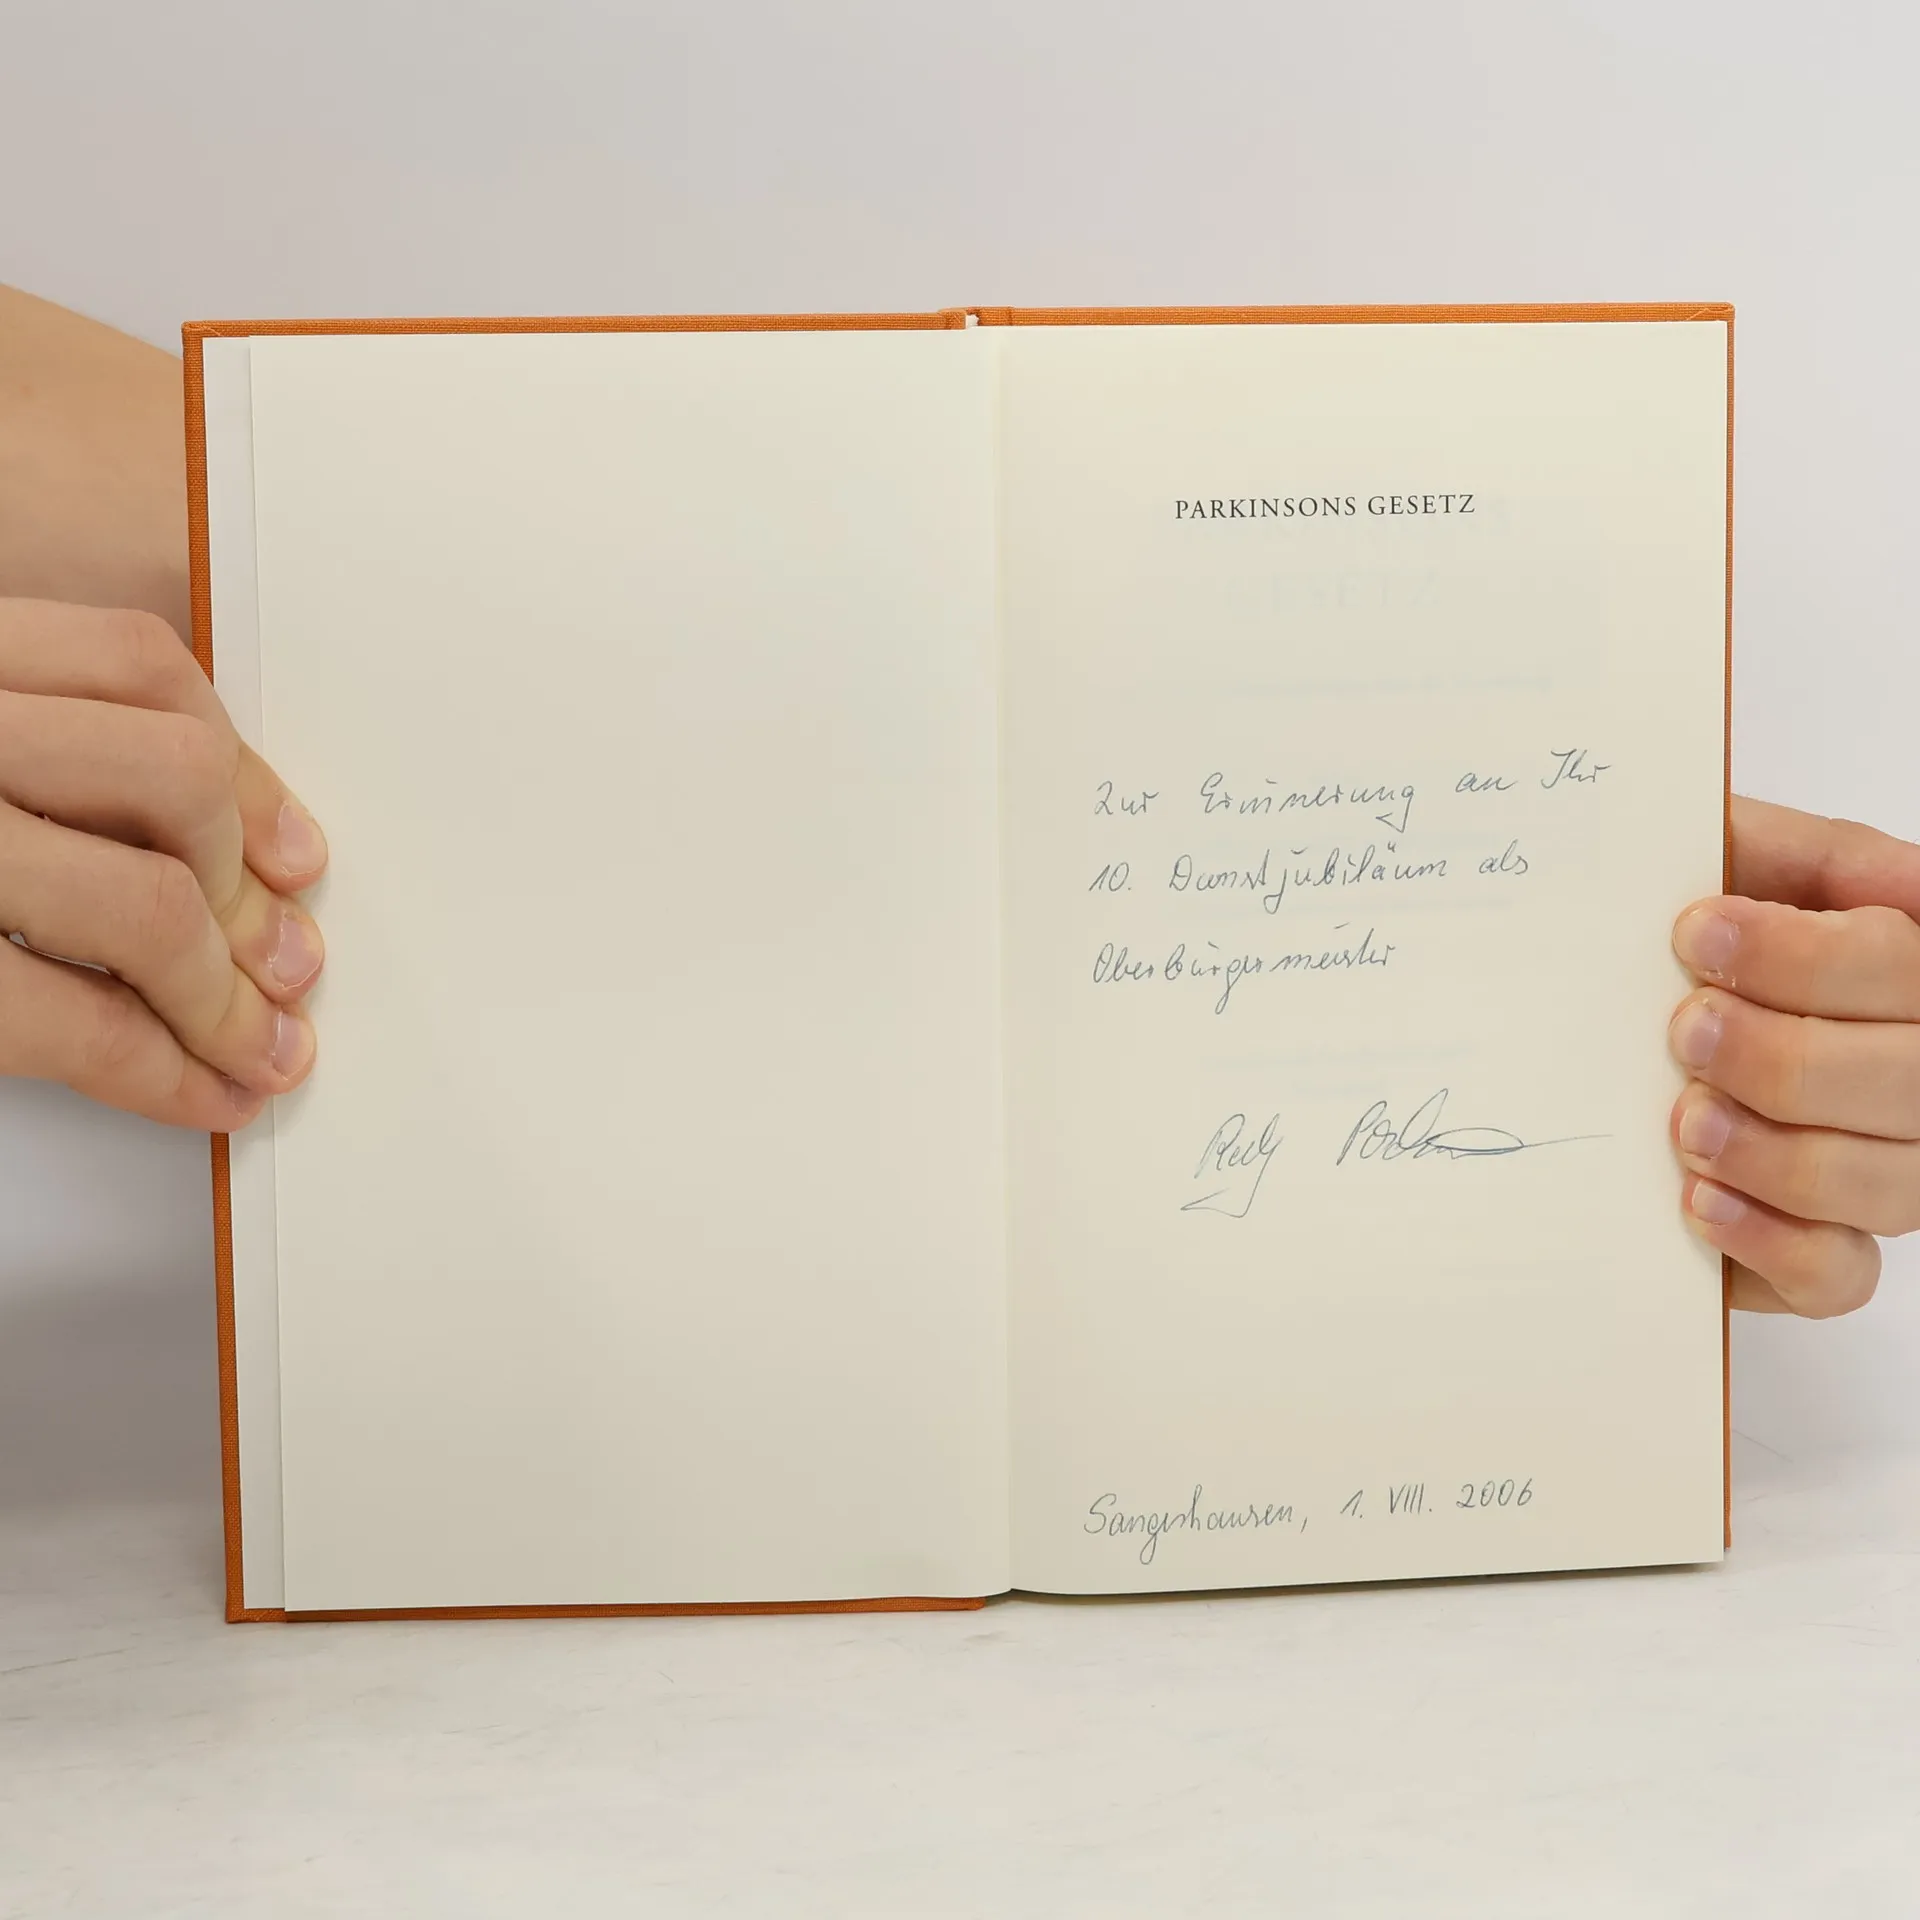 PARKINSONS GESETZ
Zur Erinnerung an Ihr
10. Dienstjubiläum als
Oberbürgermeister
Sangerhausen, 1. VIII. 2006